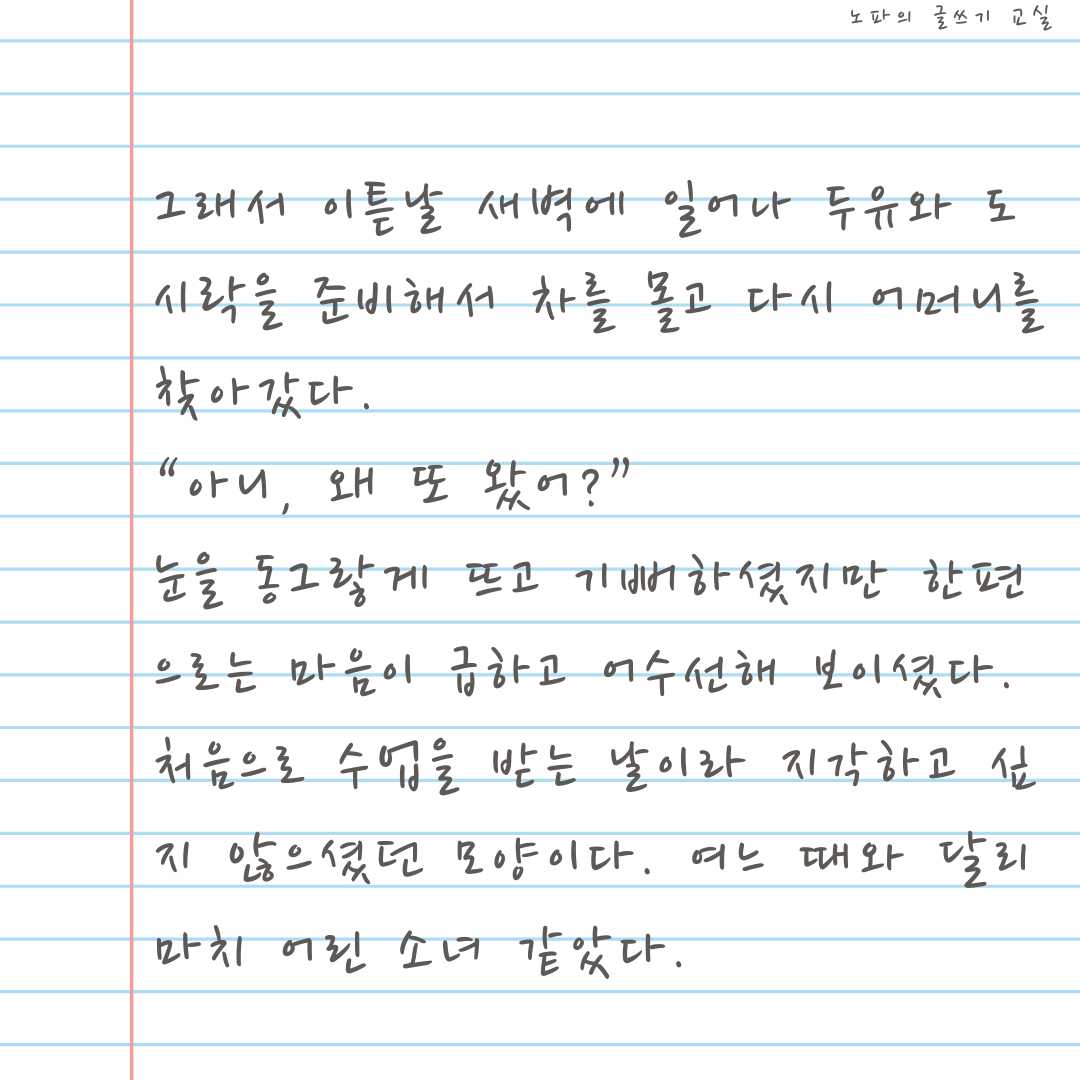 노파의 글쓰기 교실
그래서 이튿날 새벽에 일어나 두유와 도
시락을 준비해서 차를 몰고 다시 어머니를
찾아갔다.
“아니, 왜 또 왔어?”
눈을 동그랗게 뜨고 기뻐하셨지만 한편
으로는 마음이 급하고 어수선해 보이셨다.
처음으로 수업을 받는 날이라 지각하고 싶
지 않으셨던 모양이다. 여느 때와 달리
마치 어린 소녀 같았다.